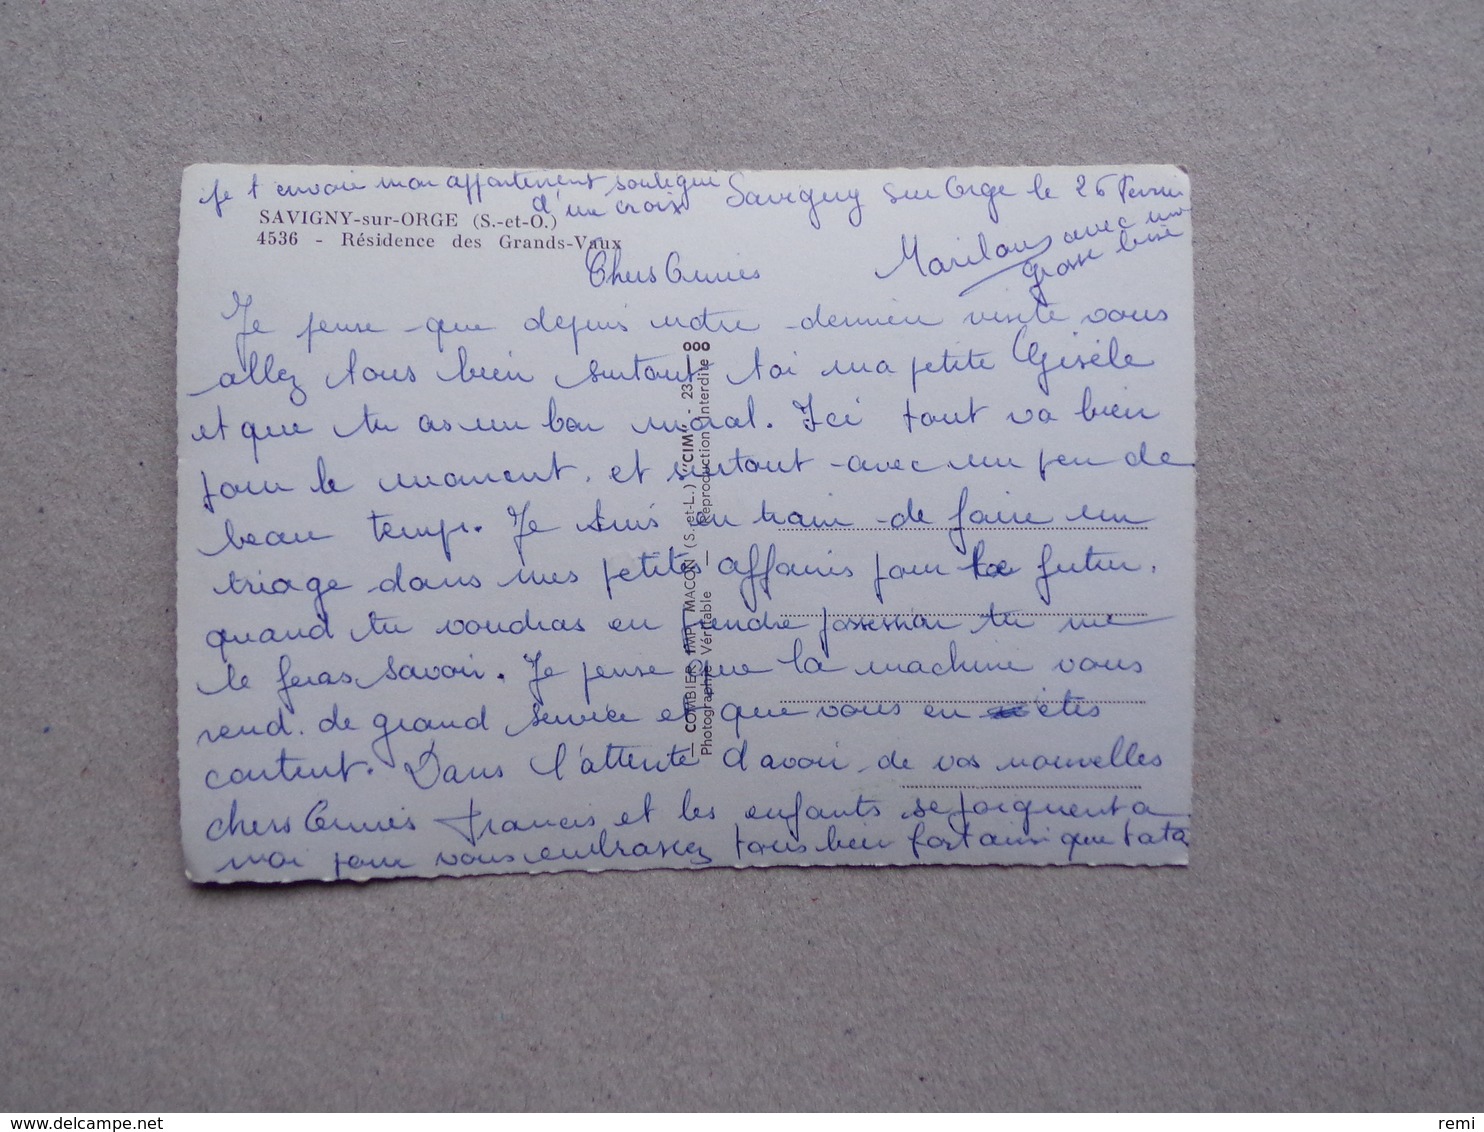 je t envoie mon appartement souligne
d'une croix
Savigny sur Orge le 26 Fevrier
SAVIGNY-sur-ORGE (S.-et-O.)
4536 - Résidence des Grands-Vaux
Chers Amies
Marilou avec une
grosse bise
Je pense que depuis notre dernier visite vous
allez tous bien surtout toi ma petite Gisèle
et que tu as un bon moral. Ici tout va bien
pour le moment. et surtout avec un peu de
beau temps. Je suis en train de faire un
triage dans mes petites affaires pour le futur.
quand tu voudras en prendre possession tu me
le feras savoir. Je pense que la machine vous
rend de grand service et que vous en êtes
content. Dans l'attente d'avoir de vos nouvelles
chers Amies Francis et les enfants se joignent a
moi pour vous embrassez tous bien fort ainsi que tata
— COMBIER IMP. MACON (S.-et-L.) "CIM" - 23 000
Photographie Véritable — Reproduction interdite
delcampe.net
remi